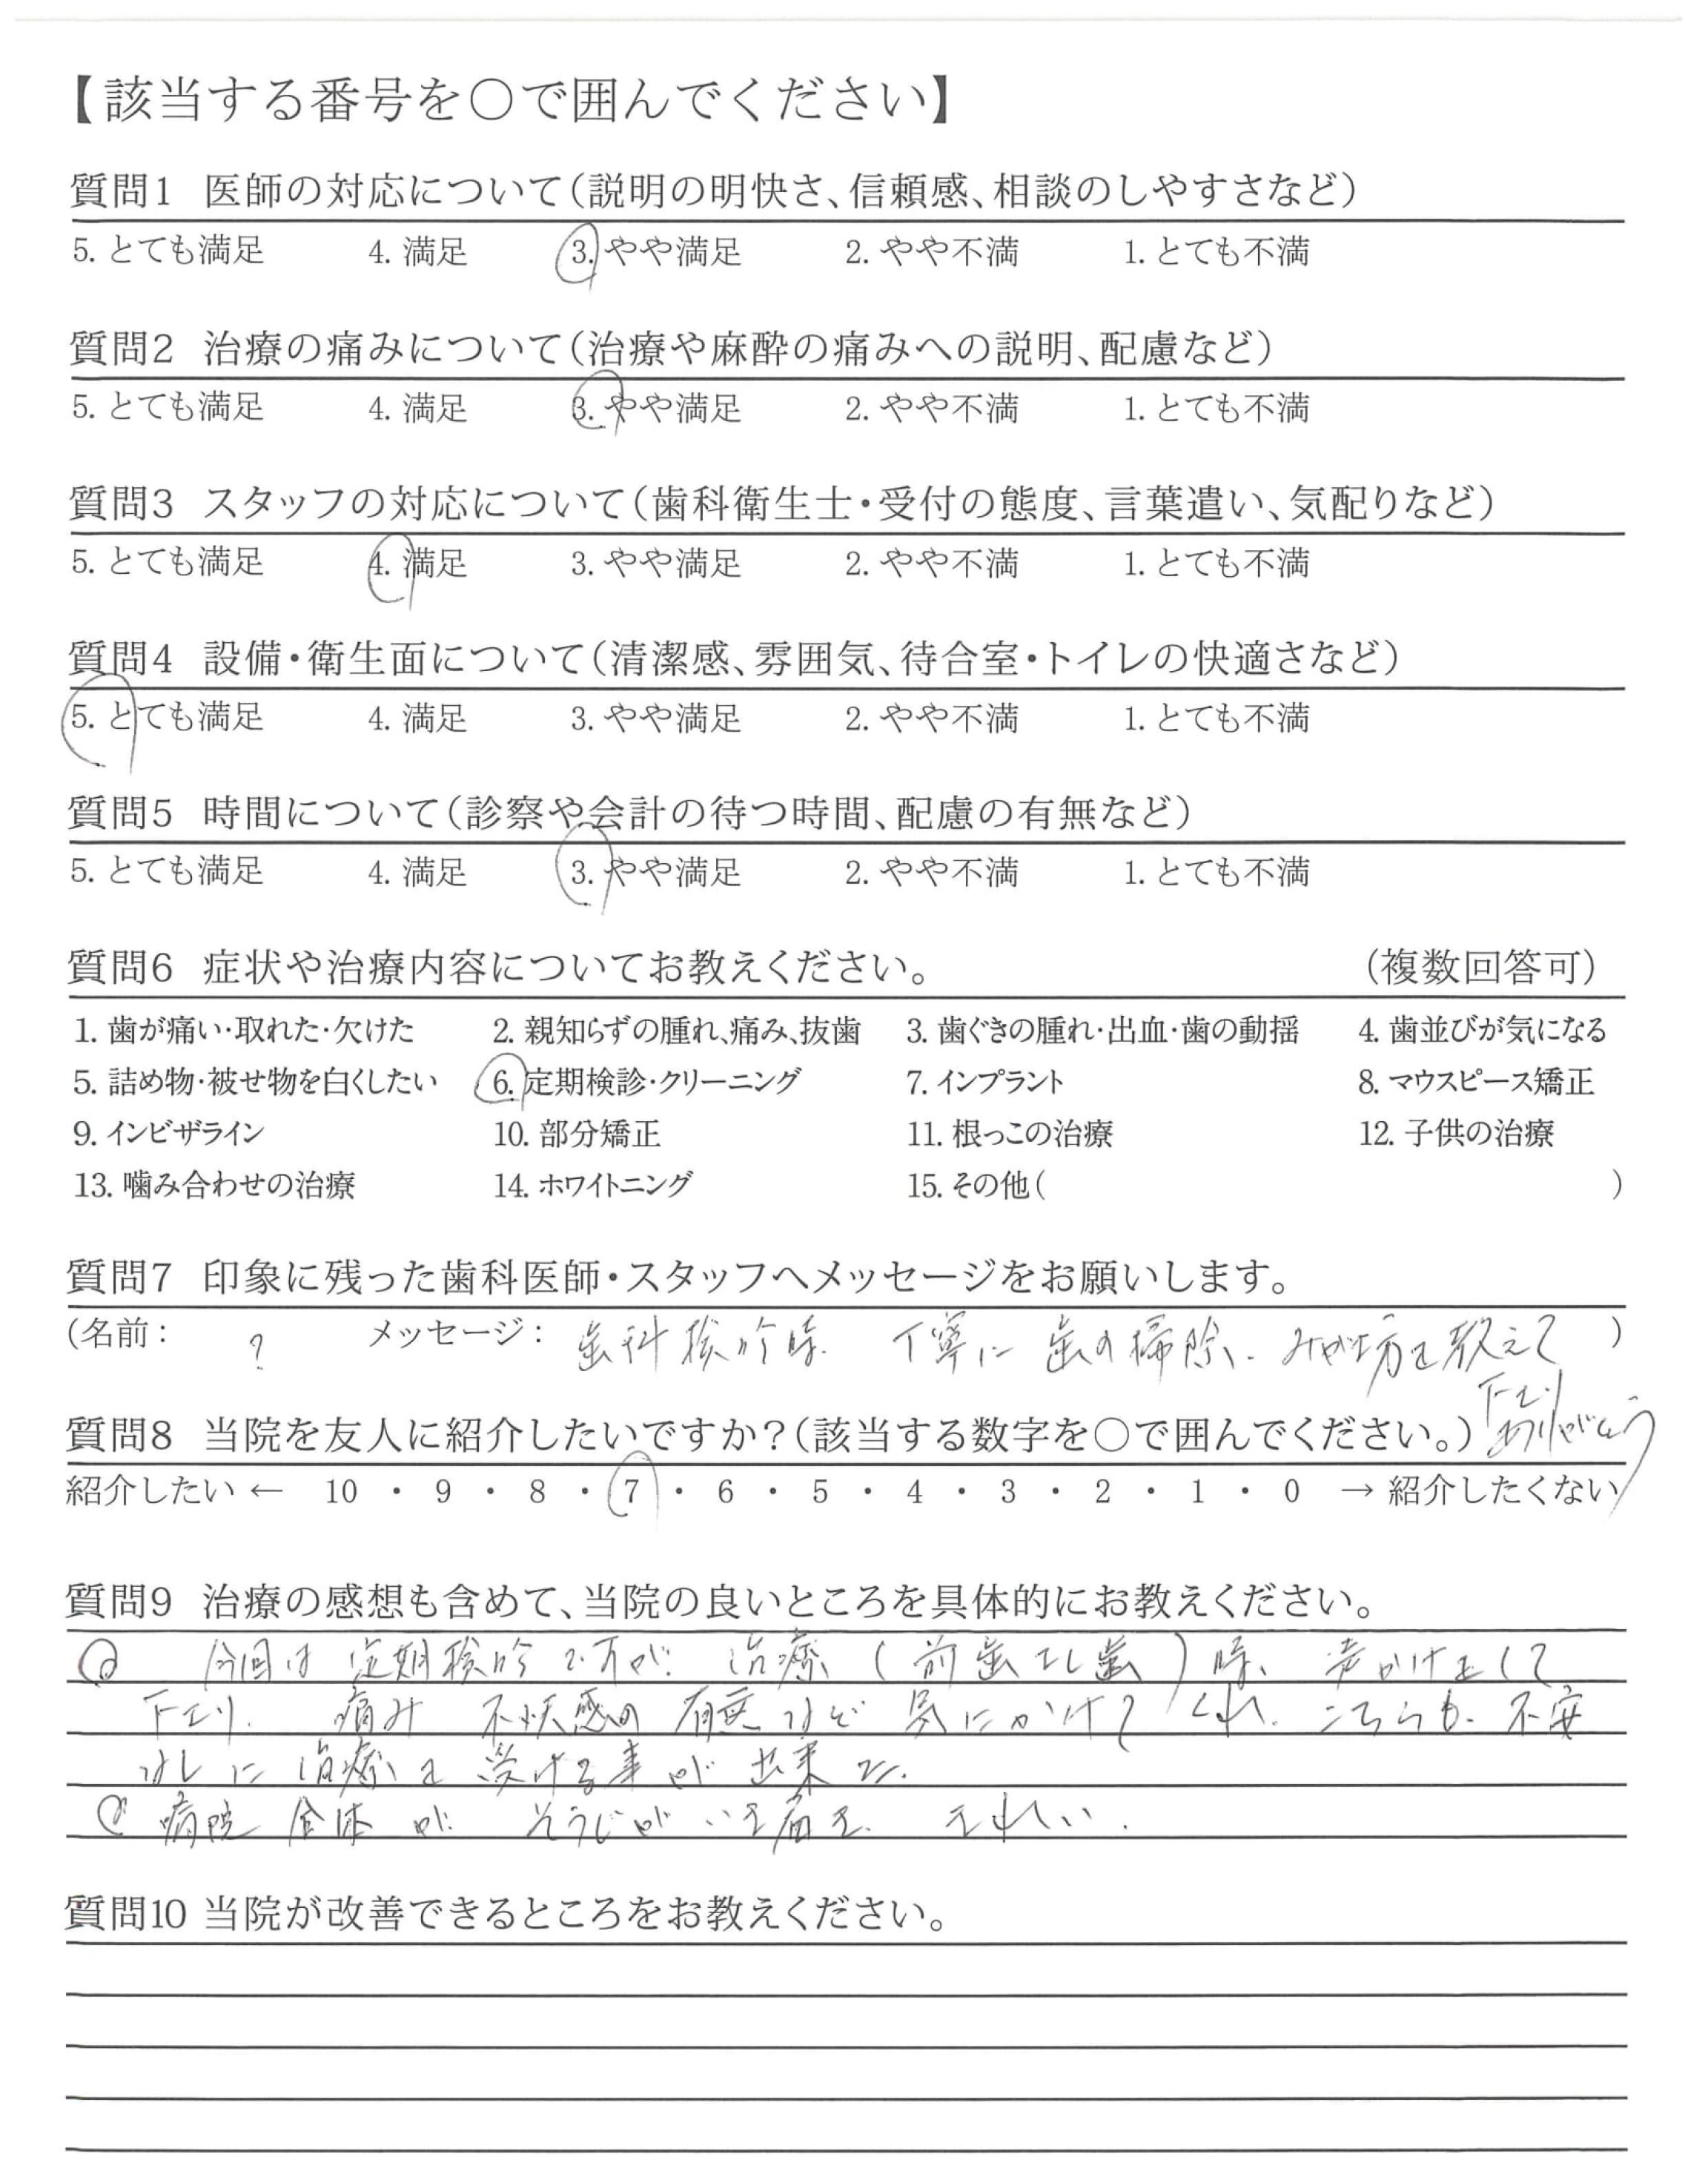 【該当する番号を○で囲んでください】
質問1 医師の対応について(説明の明快さ、信頼感、相談のしやすさなど)
5. とても満足 4. 満足 3. やや満足 2. やや不満 1. とても不満
質問2 治療の痛みについて(治療や麻酔の痛みへの説明、配慮など)
5. とても満足 4. 満足 3. やや満足 2. やや不満 1. とても不満
質問3 スタッフの対応について(歯科衛生士・受付の態度、言葉遣い、気配りなど)
5. とても満足 4. 満足 3. やや満足 2. やや不満 1. とても不満
質問4 設備・衛生面について(清潔感、雰囲気、待合室・トイレの快適さなど)
5. とても満足 4. 満足 3. やや満足 2. やや不満 1. とても不満
質問5 時間について(診察や会計の待つ時間、配慮の有無など)
5. とても満足 4. 満足 3. やや満足 2. やや不満 1. とても不満
質問6 症状や治療内容についてお教えください。 (複数回答可)
1. 歯が痛い・取れた・欠けた 2. 親知らずの腫れ、痛み、抜歯 3. 歯ぐきの腫れ・出血・歯の動揺 4. 歯並びが気になる
5. 詰め物・被せ物を白くしたい 6. 定期検診・クリーニング 7. インプラント 8. マウスピース矯正
9. インビザライン 10. 部分矯正 11. 根っこの治療 12. 子供の治療
13. 噛み合わせの治療 14. ホワイトニング 15. その他( )
質問7 印象に残った歯科医師・スタッフへメッセージをお願いします。
(名前: ? メッセージ: 歯科検診時 丁寧に 歯の掃除、みがき方を教えて )
下さり
ありがとう
質問8 当院を友人に紹介したいですか?(該当する数字を○で囲んでください。)
紹介したい ← 10 ・ 9 ・ 8 ・ 7 ・ 6 ・ 5 ・ 4 ・ 3 ・ 2 ・ 1 ・ 0 → 紹介したくない
質問9 治療の感想も含めて、当院の良いところを具体的にお教えください。
今回は定期検診ですが 治療(前歯さし歯)時、声かけをして
下さり、痛み 不快感の有無など 気にかけてくれ、こちらも、不安
なしに治療を受ける事が出来た。
病院全体が そうじがいき届き、きれい.
質問10 当院が改善できるところをお教えください。